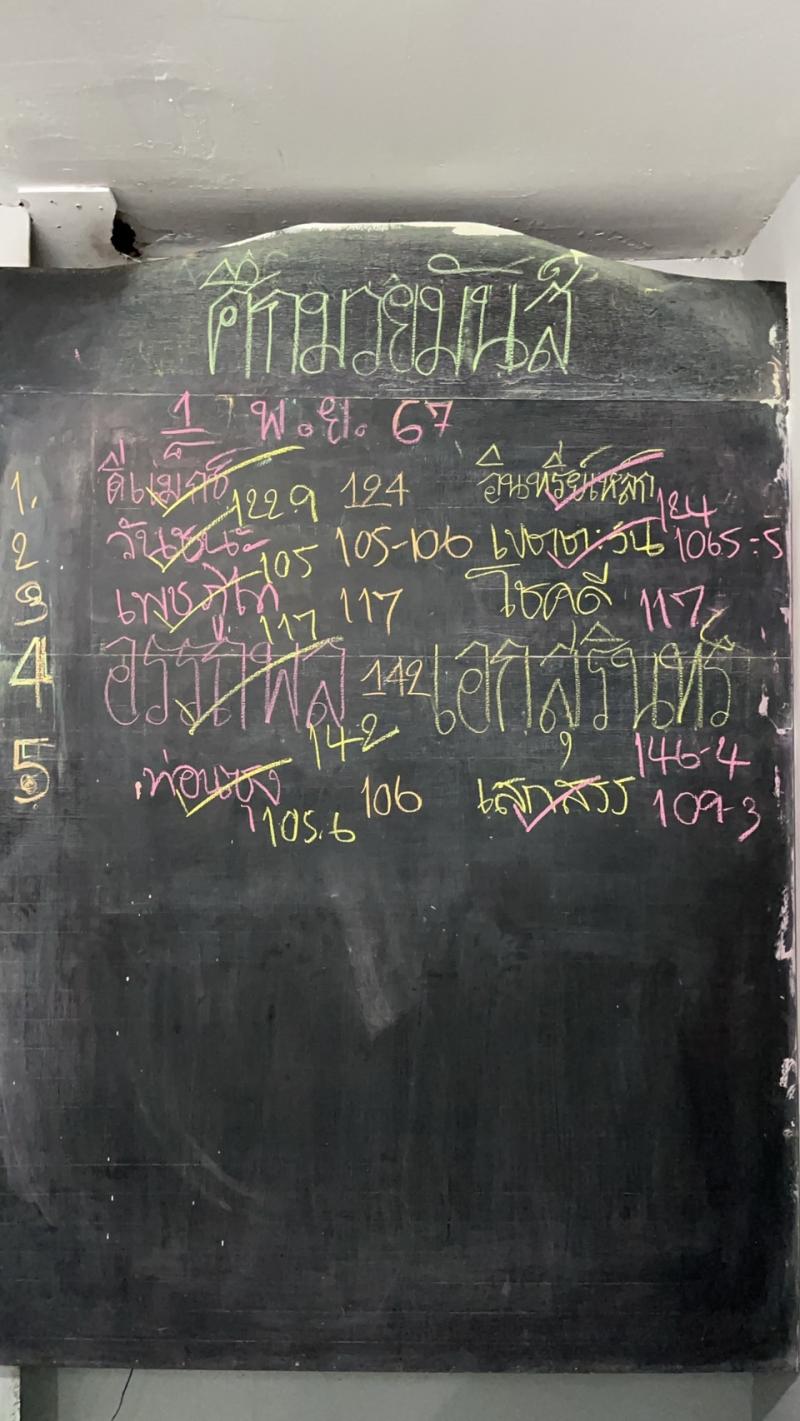 ศึกมวยมันส์
1 พ.ย. 67
1. ดีแม็กซ์ 122.9 124 อินทรีย์เหล็ก 124
2. วันชนะ 105 105-106 เพชรตะวัน 1065-5
3 เพชรภูไท 117 117 โชคดี 117
4 อรรถพล 142 142 เอกสุรินทร์ 146-4
5 105.6 106 เสกสรร 109-3